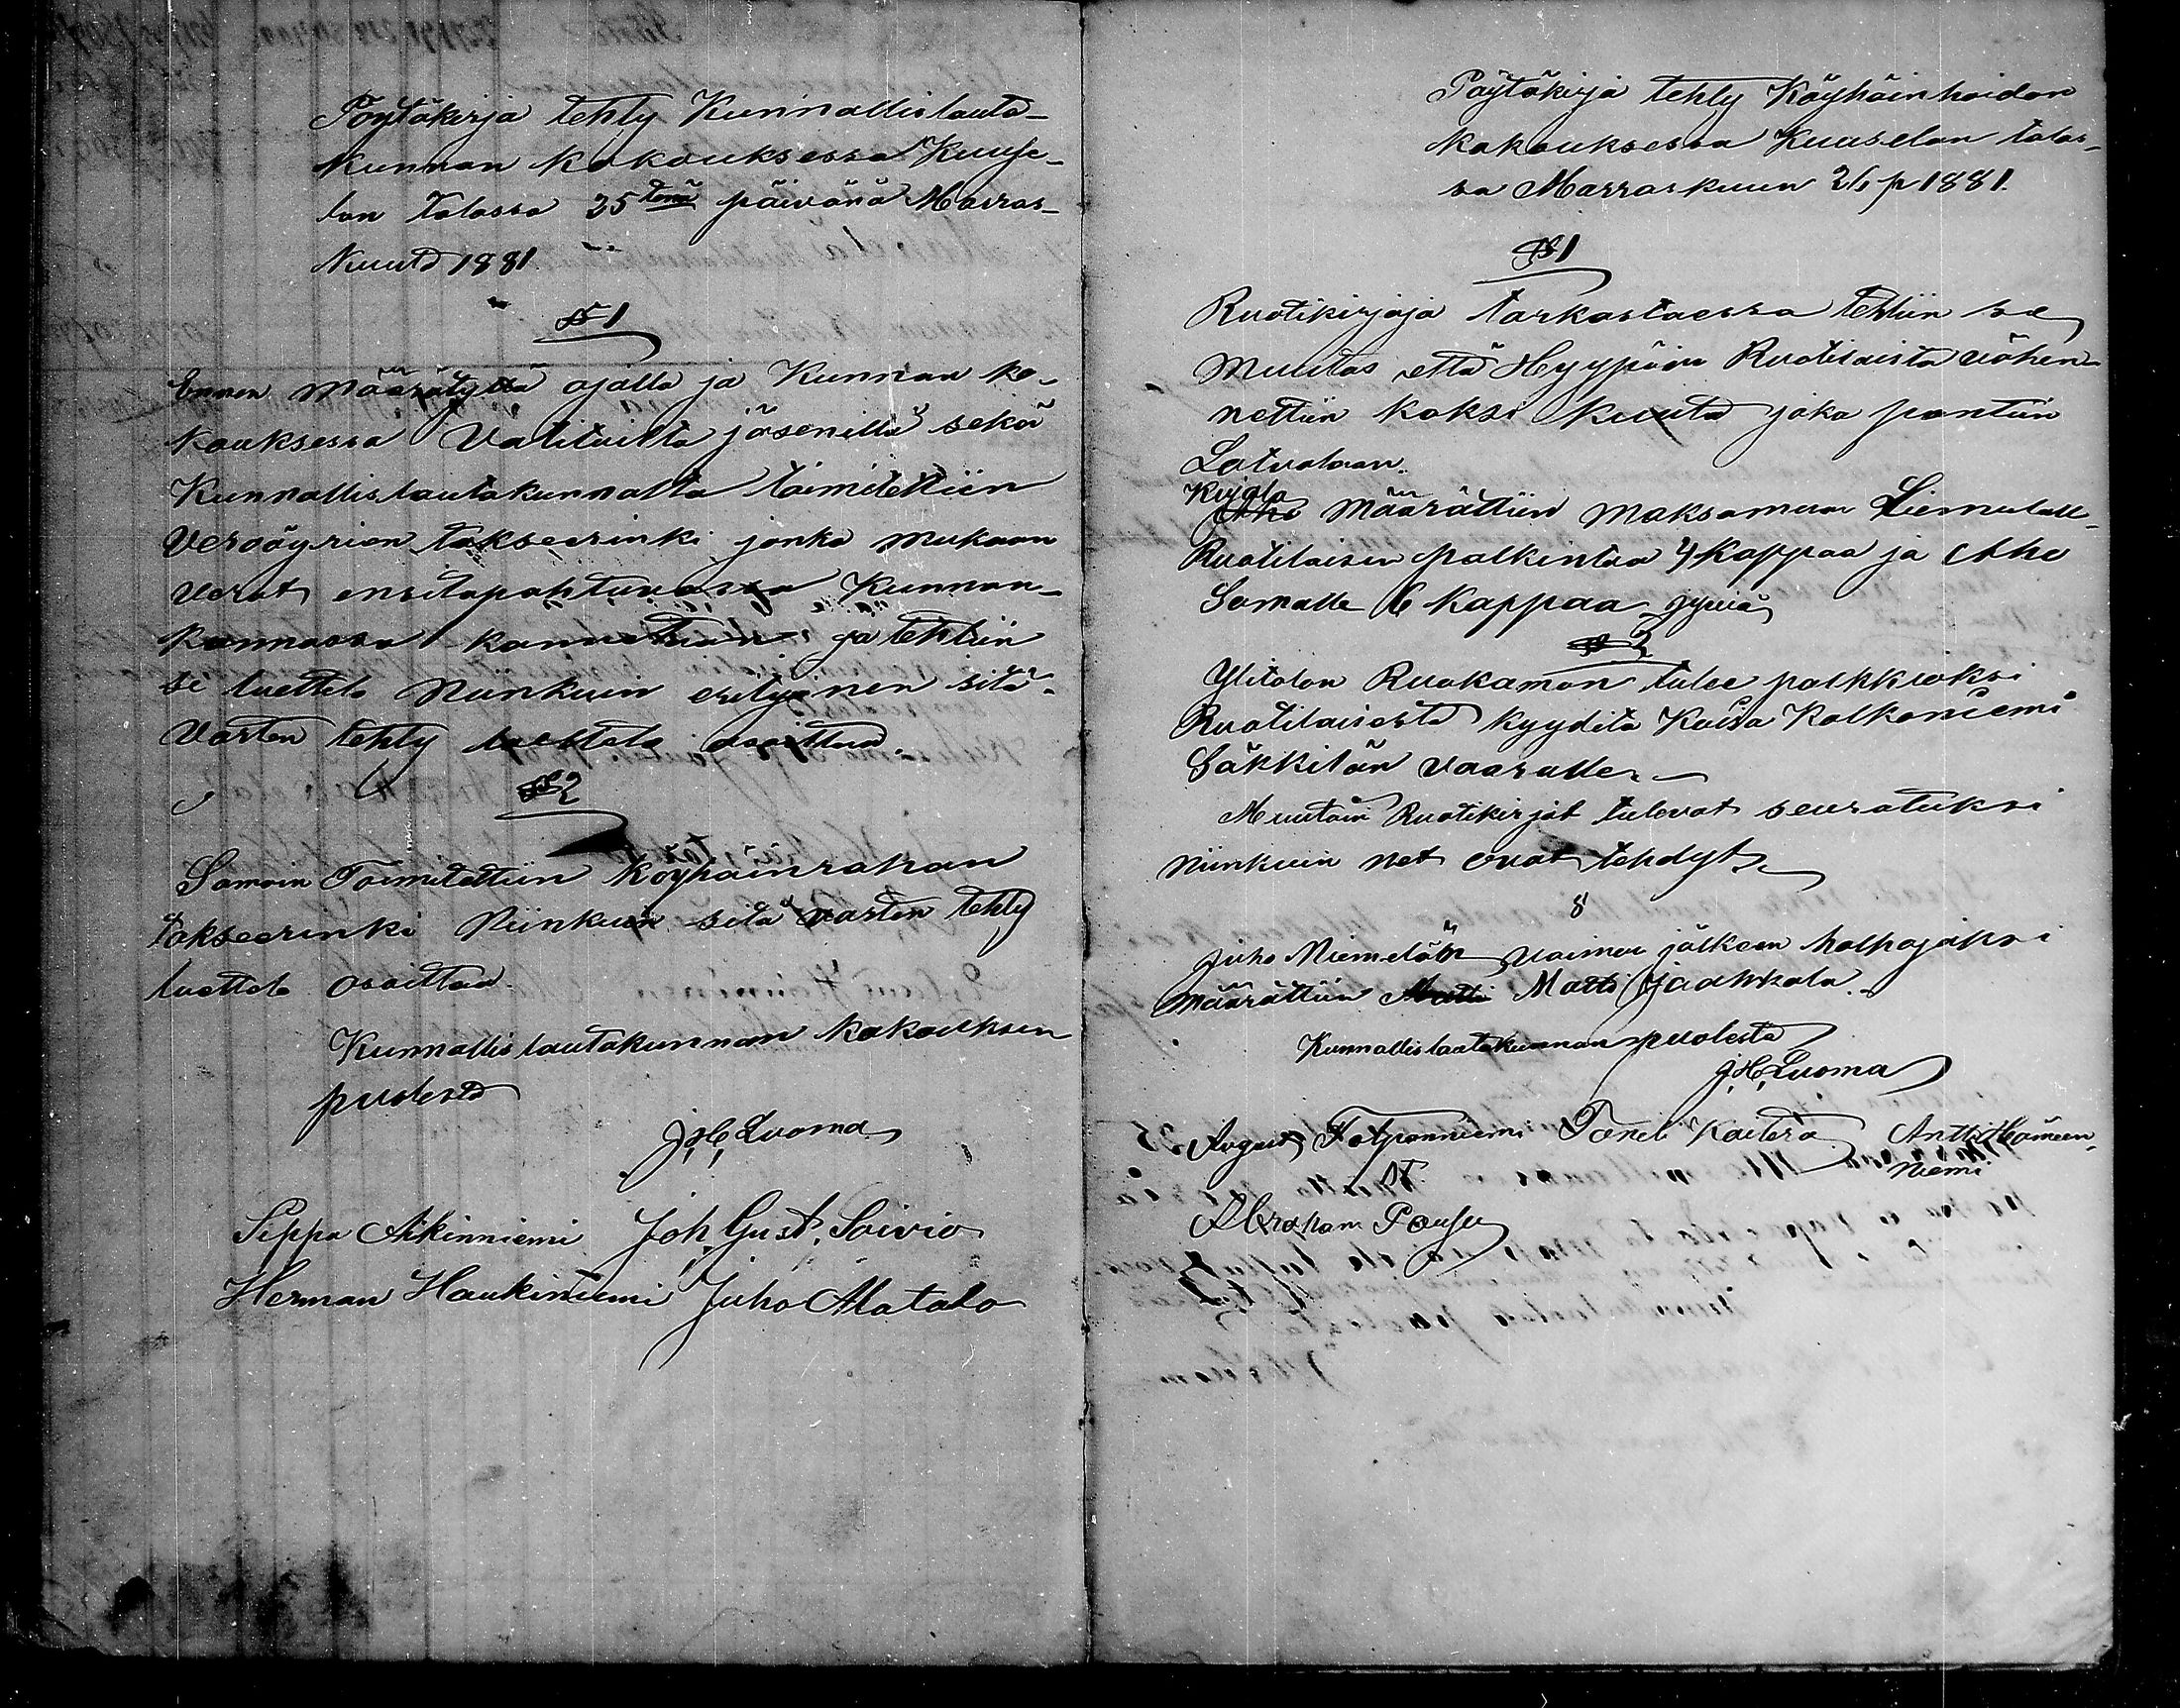 Pöytäkirja tehty Kunnallislauta-
kunnan kokouksessa Kuuse-
lan talossa 25 tenä päivänä Marras-
kuuta 1881
§ 1
Ennen määrätyllä ajalla ja Kunnan ko-
kouksessa Valituilta jäsenillä sekä
Kunnallislautakunnalta toimitettiin
Veroäyrien takseerinki jonka mukaan
verot ensitapahtuvassa Kunnan-
kannossa kannetaan ja tehtiin
se luettelo niinkuin erityinen sitä-
varten tehty luettelo osoittaa.
§ 2
Samoin Toimitettiin köyhäinrahan
takseerinki Niinkuin sitä varten tehty
luettelo osoittaa.
Kunnallislautakunnan kokouksen
puolesta
J, H, Luoma
Seppo Aikinniemi Joh, Gust, Soivio
Herman Haukiniemi Juho Alatalo
Pöytäkirja tehty Köyhäinhoidon
kokouksessa Kuuselan talos-
sa Marraskuun 26 p 1881.
§ 1
Ruotikirjoja tarkastaessa tehtiin se
muutos että Hyypän Ruotilaista vähen-
nettiin kaksi kuuta joka pantiin
Latvalaan.
Kujala
Aho määrättiin maksamaan Liemulall-
Ruotilaisen palkintoa 4 Kappaa ja Aho
Samalle 6 Kappaa jyviä
§ 2
Ylitalon Ruokaman tulee palkkioksi
Ruotilaisesta kyyditä Kaisa Kalkoniemi
Säkkilän vaaralle.
Muutoin Ruotikirjat tulevat seuratuksi
niinkuin net ovat tehdyt.
§
Juho Niemelän vaimon jälkeen holhojaksi
määrättiin Matti Matti Jaakkola.
Kunnallislautakunnan puolesta
J, H, Luoma
August Tolpanniemi Taneli Kaitera Antti Hämeen-
niemi
Abraham Pousu